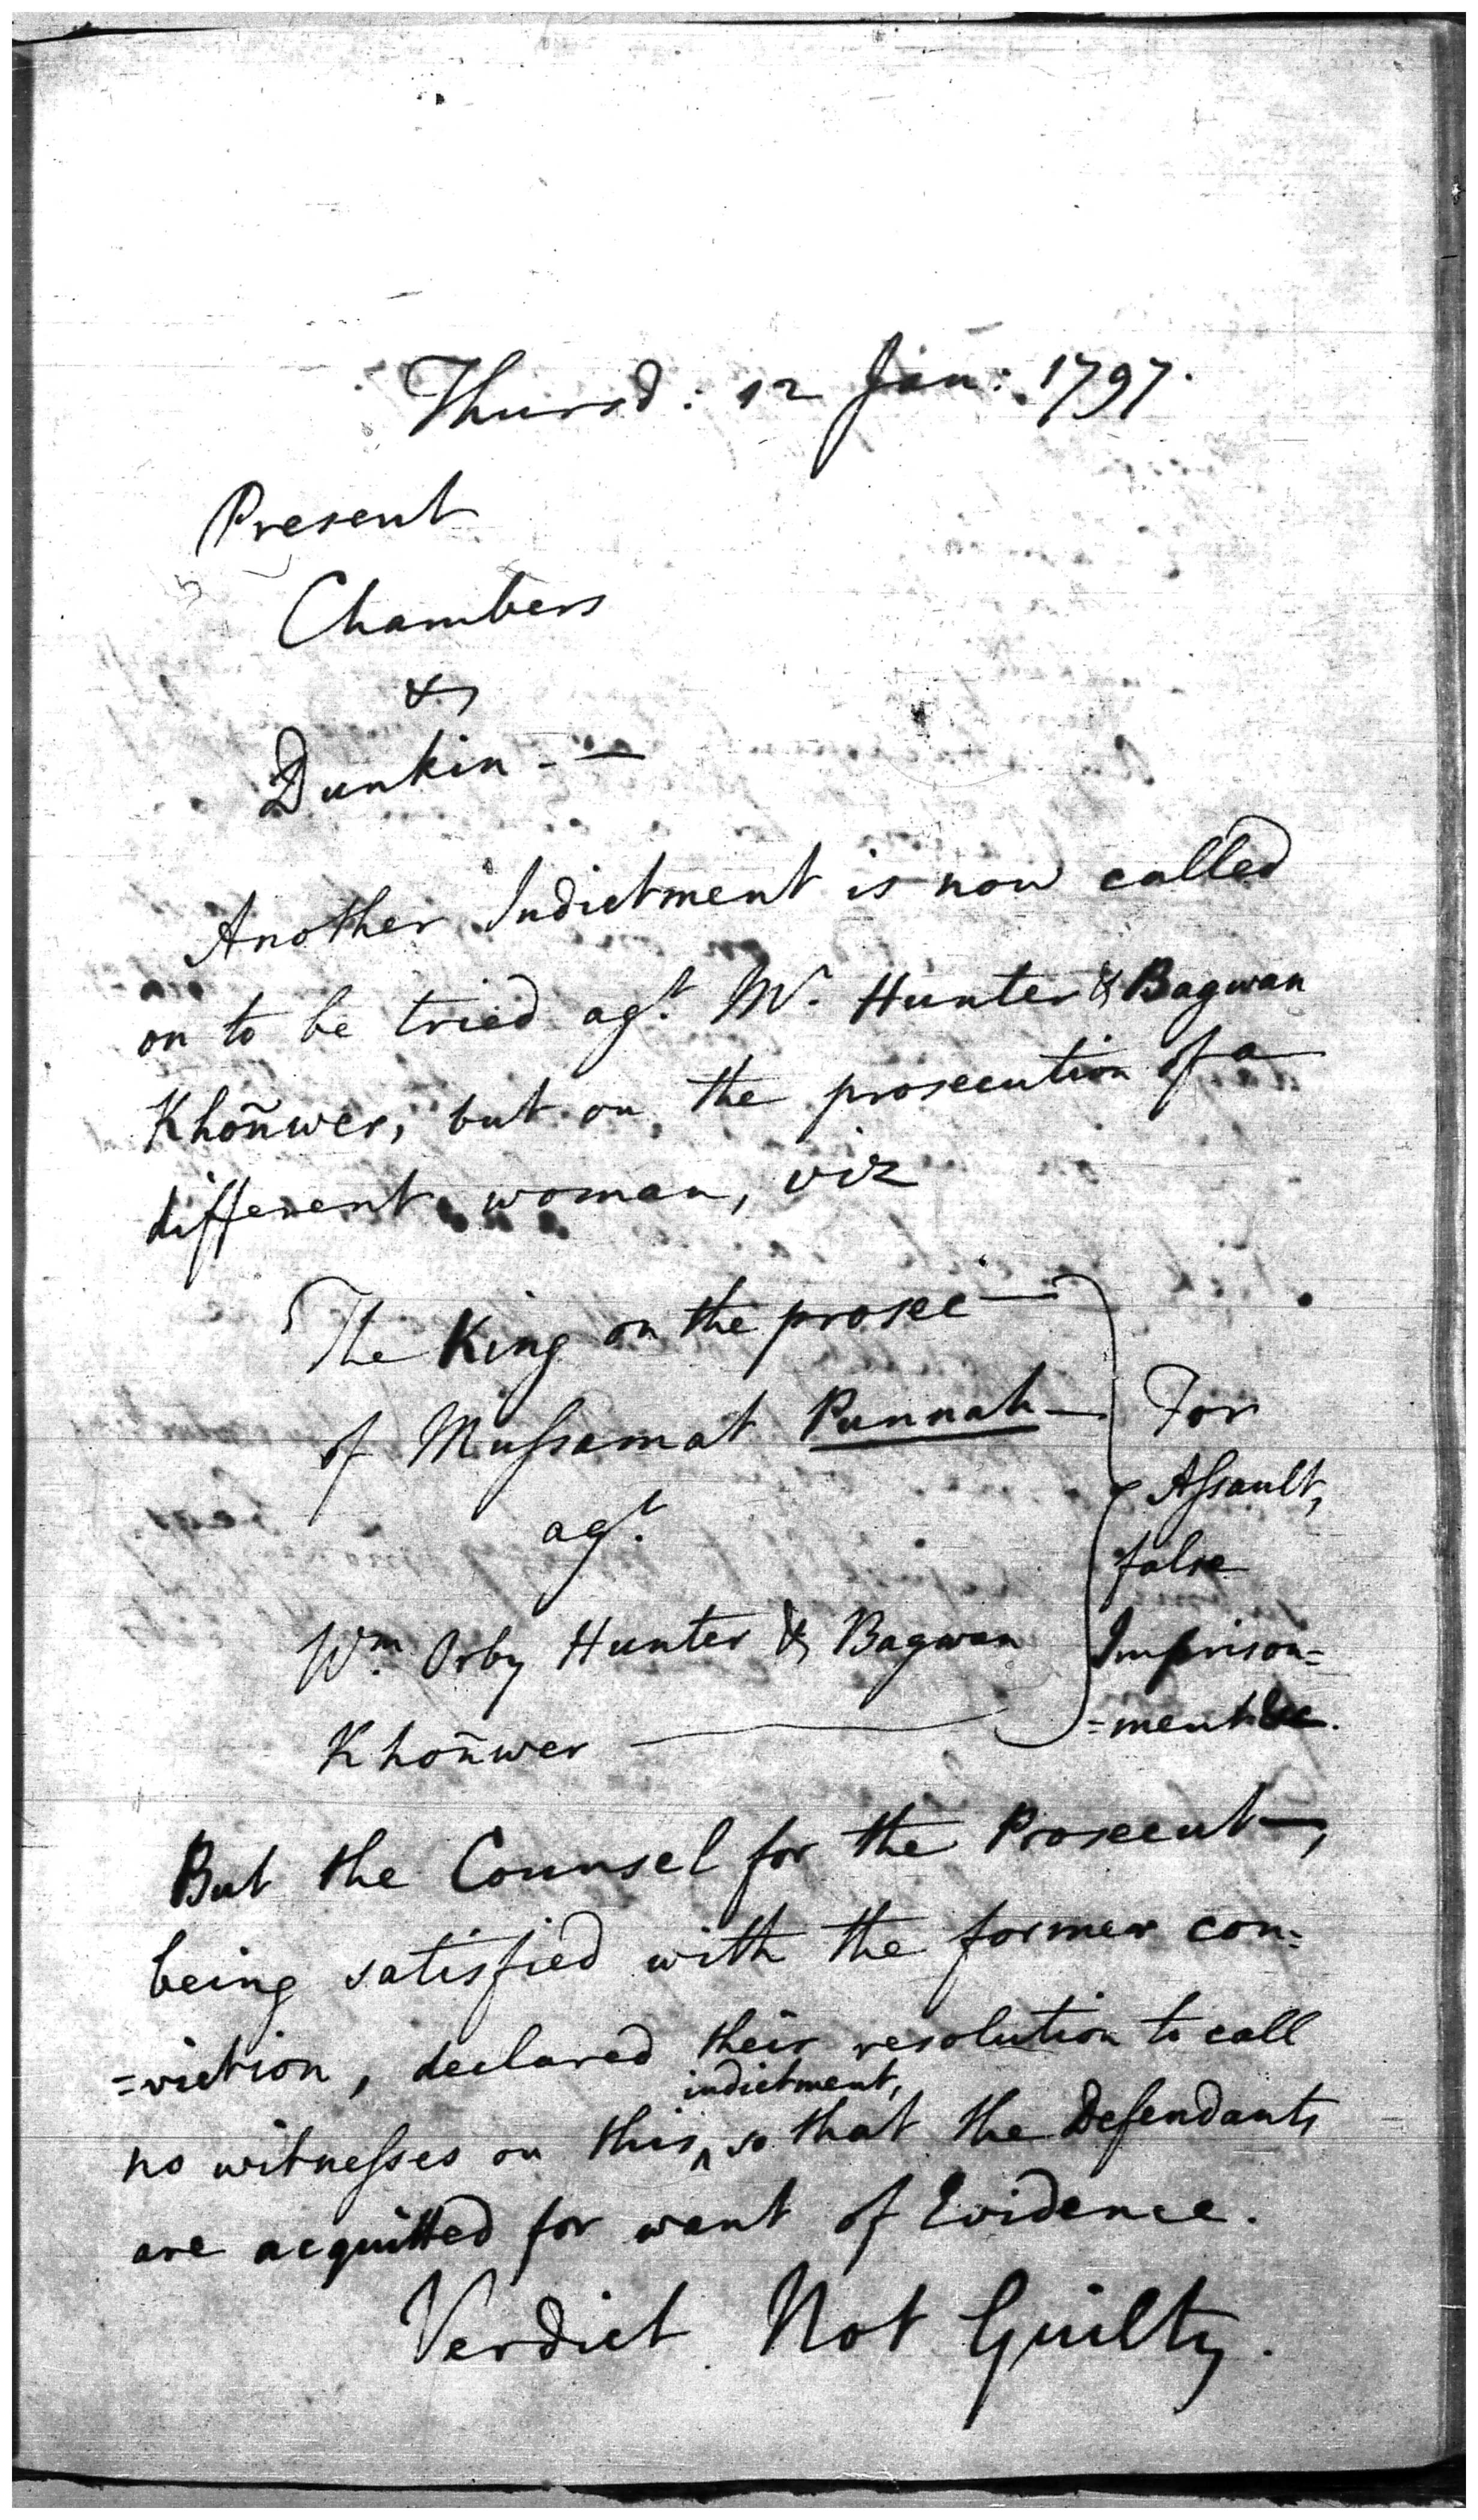 Thursd: 12 Jan: 1797.
Present
Chambers
&
Dunkin - —
Another Indictment is now called
on to be tried agt. Mr. Hunter & Bagwan
Khoñwer, but on the prosecution of a
different woman, viz
The King on the prosec—
of Mussamat Punnah —
agt.
Wm. Orby Hunter & Bagwan
Khoñwer —
For
Assault,
false
Imprison=
=ment &c.
But the Counsel for the Prosecut—,
being satisfied with the former con=
=viction, declared their resolution to call
indictment,
no witnesses on this ^ so that the Defendants
are acquitted for want of Evidence.
Verdict Not Guilty.